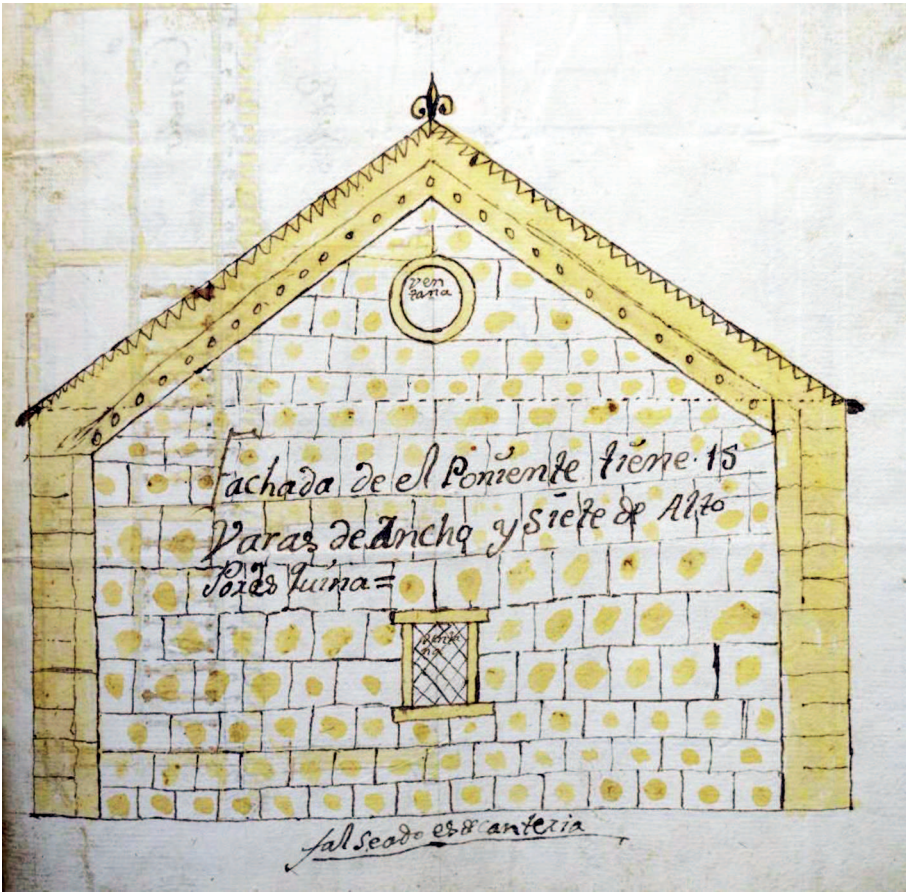 ven
tana
fachada de el Poniente tiene 15
Varas de Ancho y siete de Alto
Por es quina =
venta
na
falseado es de canteria